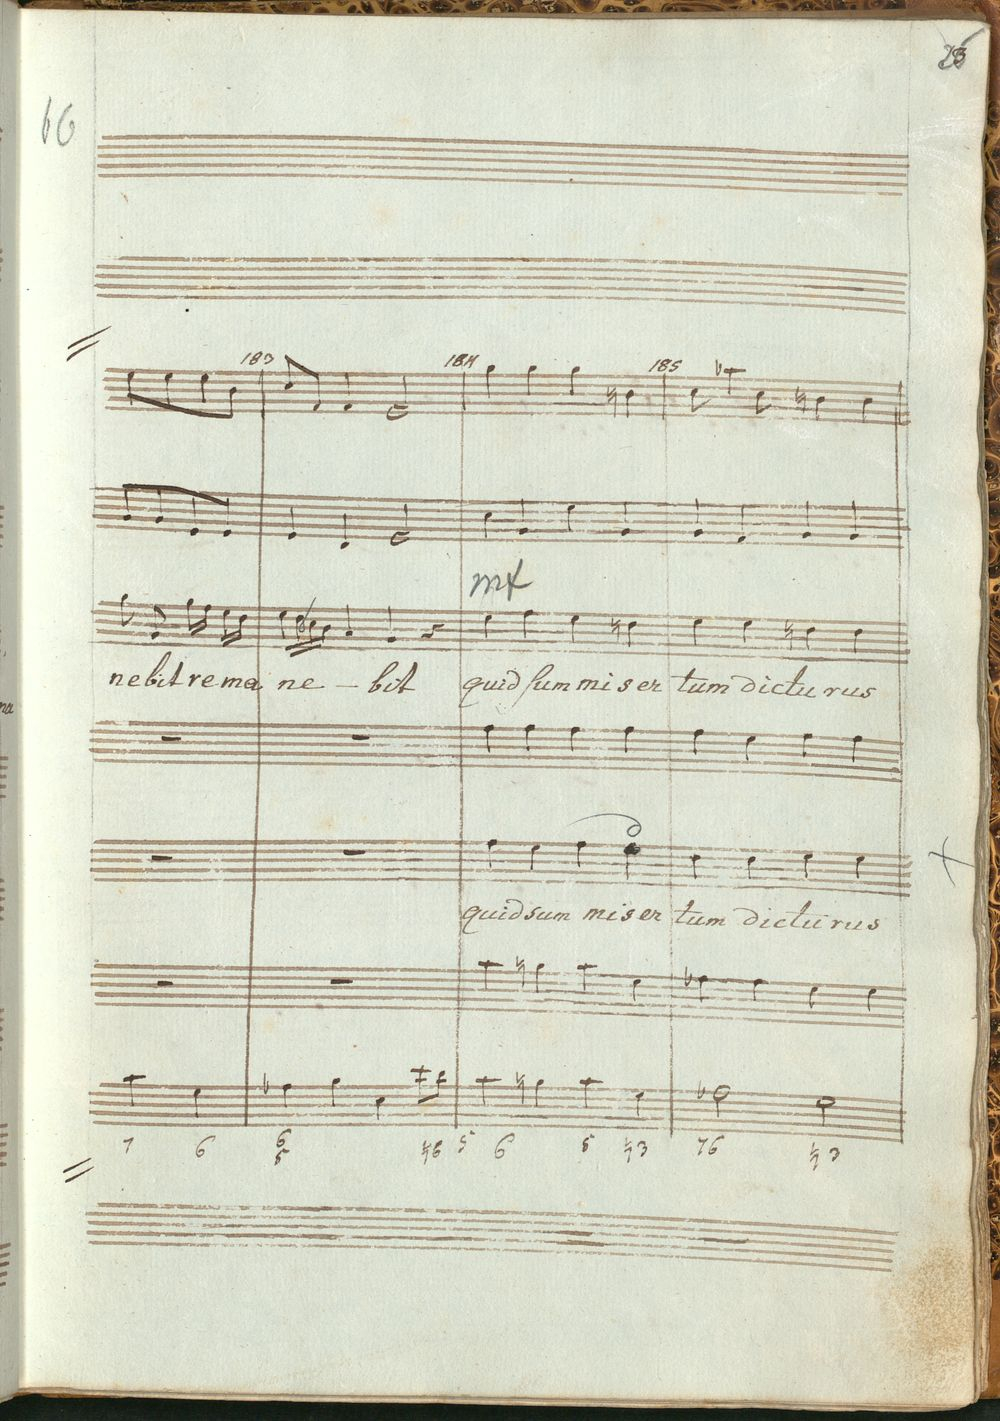 66
183 184 185
mf
nebit rema ne – bit quid sum miser tum dicturus
quid sum miser tum dicturus
7 6 6 ♮6 5 6 5 ♮3 76 ♮3
5